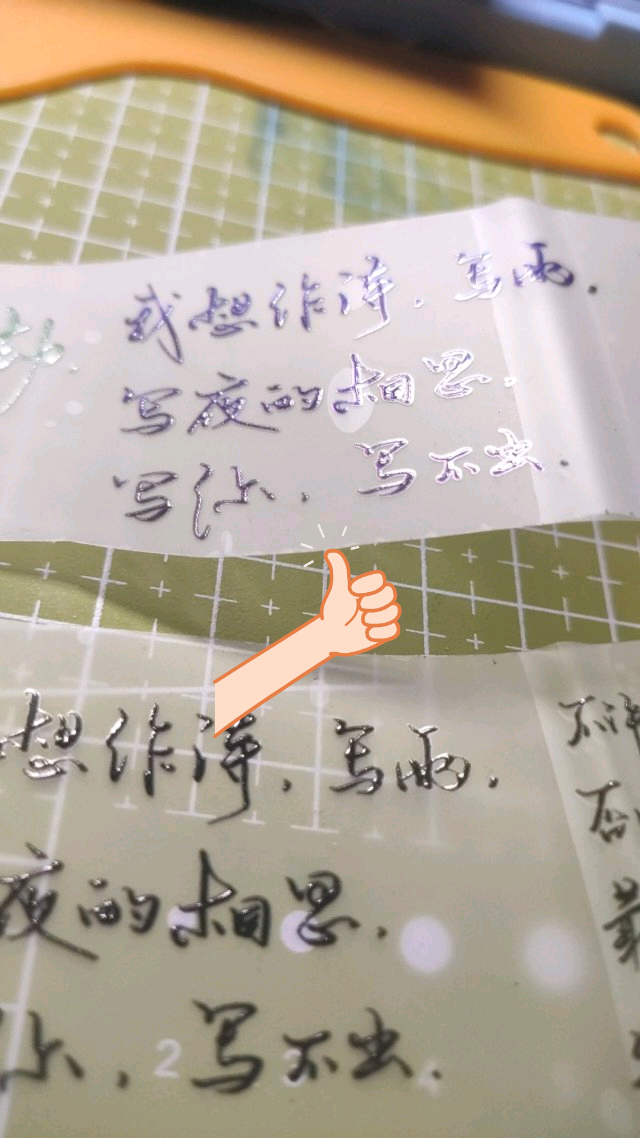 我想作诗，写雨，
写夜的相思。
写你，写不出。
想作诗，写雨，
夜的相思，
你，写不出。
不
2